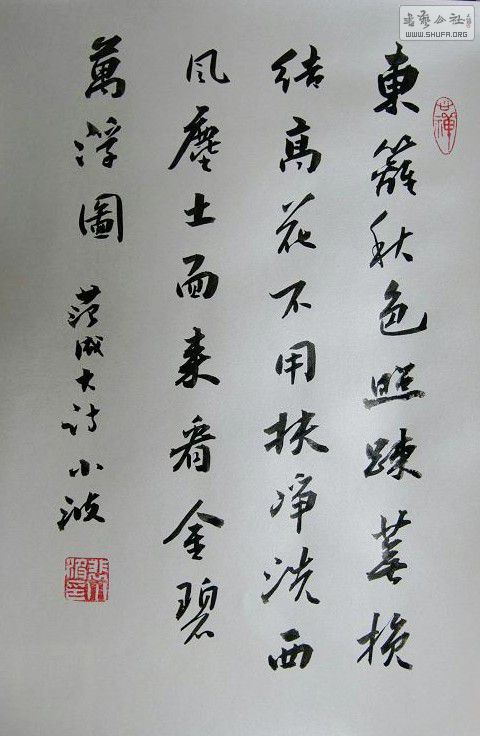 書藝公社
WWW.SHUFA.ORG
東籬秋色照疎蕪挽
結高花不用扶凈洗西
风塵土面来看金碧
萬浮圖
范成大诗小波